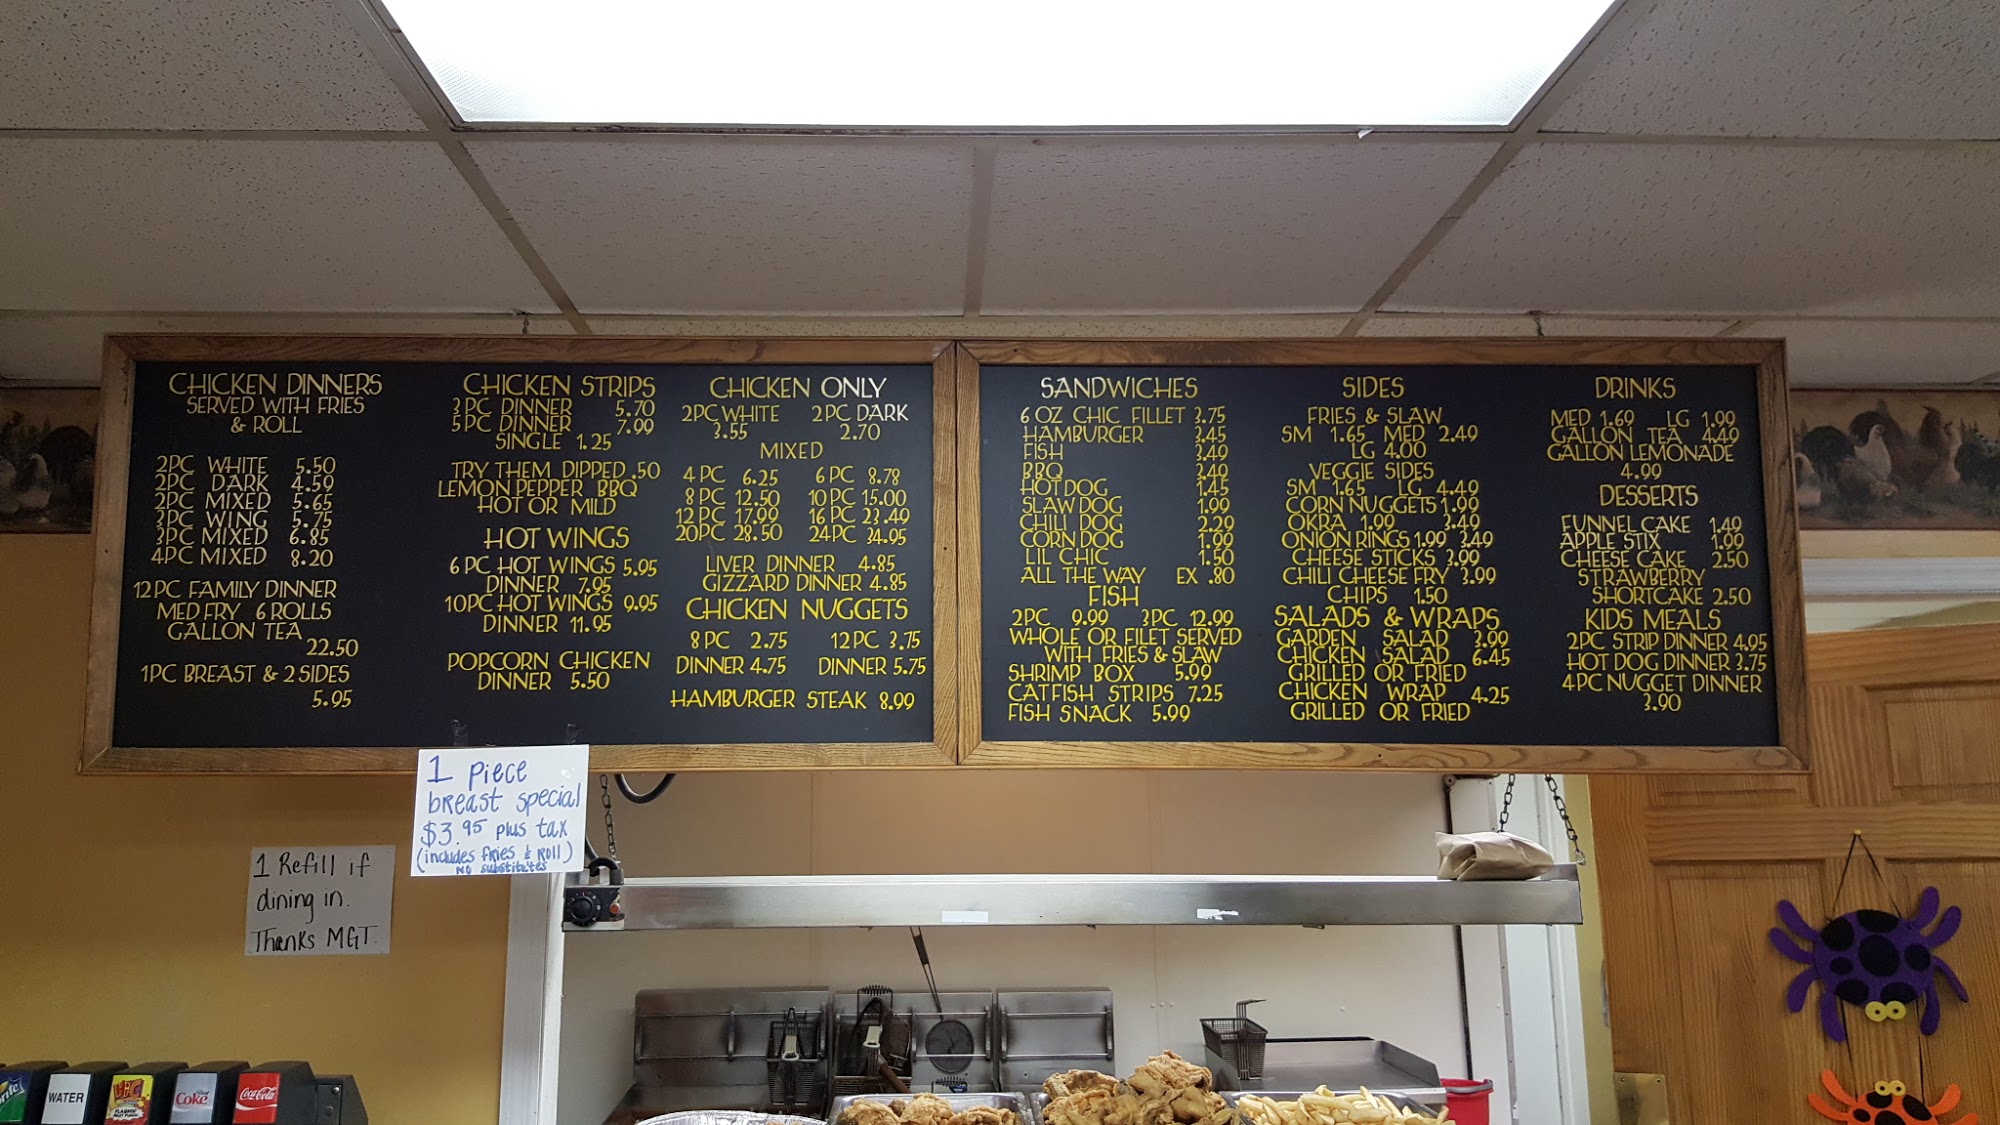 CHICKEN DINNERS
SERVED WITH FRIES
& ROLL
2PC WHITE 5.50
2PC DARK 4.59
2PC MIXED 5.65
3PC WING 5.75
3PC MIXED 6.85
4PC MIXED 8.20
12PC FAMILY DINNER
MED FRY 6 ROLLS
GALLON TEA
22.50
1PC BREAST & 2 SIDES
5.95
CHICKEN STRIPS
3 PC DINNER 5.70
5 PC DINNER 7.99
SINGLE 1.25
TRY THEM DIPPED .50
LEMON PEPPER BBQ
HOT OR MILD
HOT WINGS
6 PC HOT WINGS 5.95
DINNER 7.95
10PC HOT WINGS 9.95
DINNER 11.95
POPCORN CHICKEN
DINNER 5.50
CHICKEN ONLY
2PC WHITE 2PC DARK
3.55 2.70
MIXED
4 PC 6.25 6 PC 8.78
8 PC 12.50 10 PC 15.00
12 PC 17.99 16 PC 23.49
20PC 28.50 24PC 34.95
LIVER DINNER 4.85
GIZZARD DINNER 4.85
CHICKEN NUGGETS
8 PC 2.75 12 PC 3.75
DINNER 4.75 DINNER 5.75
HAMBURGER STEAK 8.99
SANDWICHES
6 OZ CHIC FILLET 3.75
HAMBURGER 3.45
FISH 3.49
BBQ 3.49
HOT DOG 1.45
SLAW DOG 1.99
CHILI DOG 2.29
CORN DOG 1.99
LIL CHIC 1.50
ALL THE WAY EX .80
FISH
2PC 9.99 3PC 12.99
WHOLE OR FILET SERVED
WITH FRIES & SLAW
SHRIMP BOX 5.99
CATFISH STRIPS 7.25
FISH SNACK 5.99
SIDES
FRIES & SLAW
SM 1.65 MED 2.49
LG 4.00
VEGGIE SIDES
SM 1.65 LG 4.49
CORN NUGGETS 1.99
OKRA 1.99 3.49
ONION RINGS 1.99 3.49
CHEESE STICKS 3.99
CHILI CHEESE FRY 3.99
CHIPS 1.50
SALADS & WRAPS
GARDEN SALAD 3.99
CHICKEN SALAD 6.45
GRILLED OR FRIED
CHICKEN WRAP 4.25
GRILLED OR FRIED
DRINKS
MED 1.69 LG 1.99
GALLON TEA 4.49
GALLON LEMONADE
4.99
DESSERTS
FUNNEL CAKE 1.49
APPLE STIX 1.99
CHEESE CAKE 2.50
STRAWBERRY
SHORTCAKE 2.50
KIDS MEALS
2PC STRIP DINNER 4.95
HOT DOG DINNER 3.75
4PC NUGGET DINNER
3.90
1 Piece
breast special
$3.95 plus tax
(includes fries & Roll)
No substitutes
1 Refill if
dining in.
Thanks MGT.
WATER
Coke
Coca-Cola